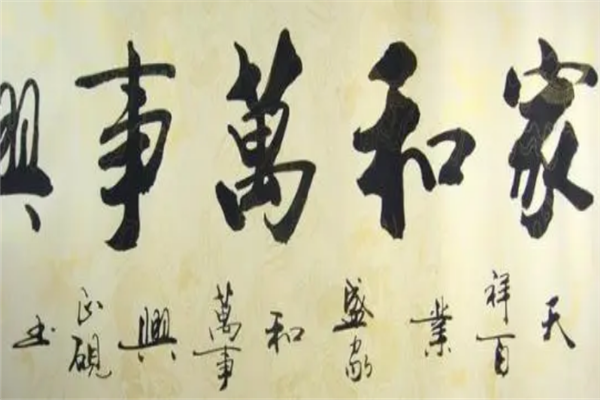 家和萬事興
天祥百業盛家和萬事興硯书